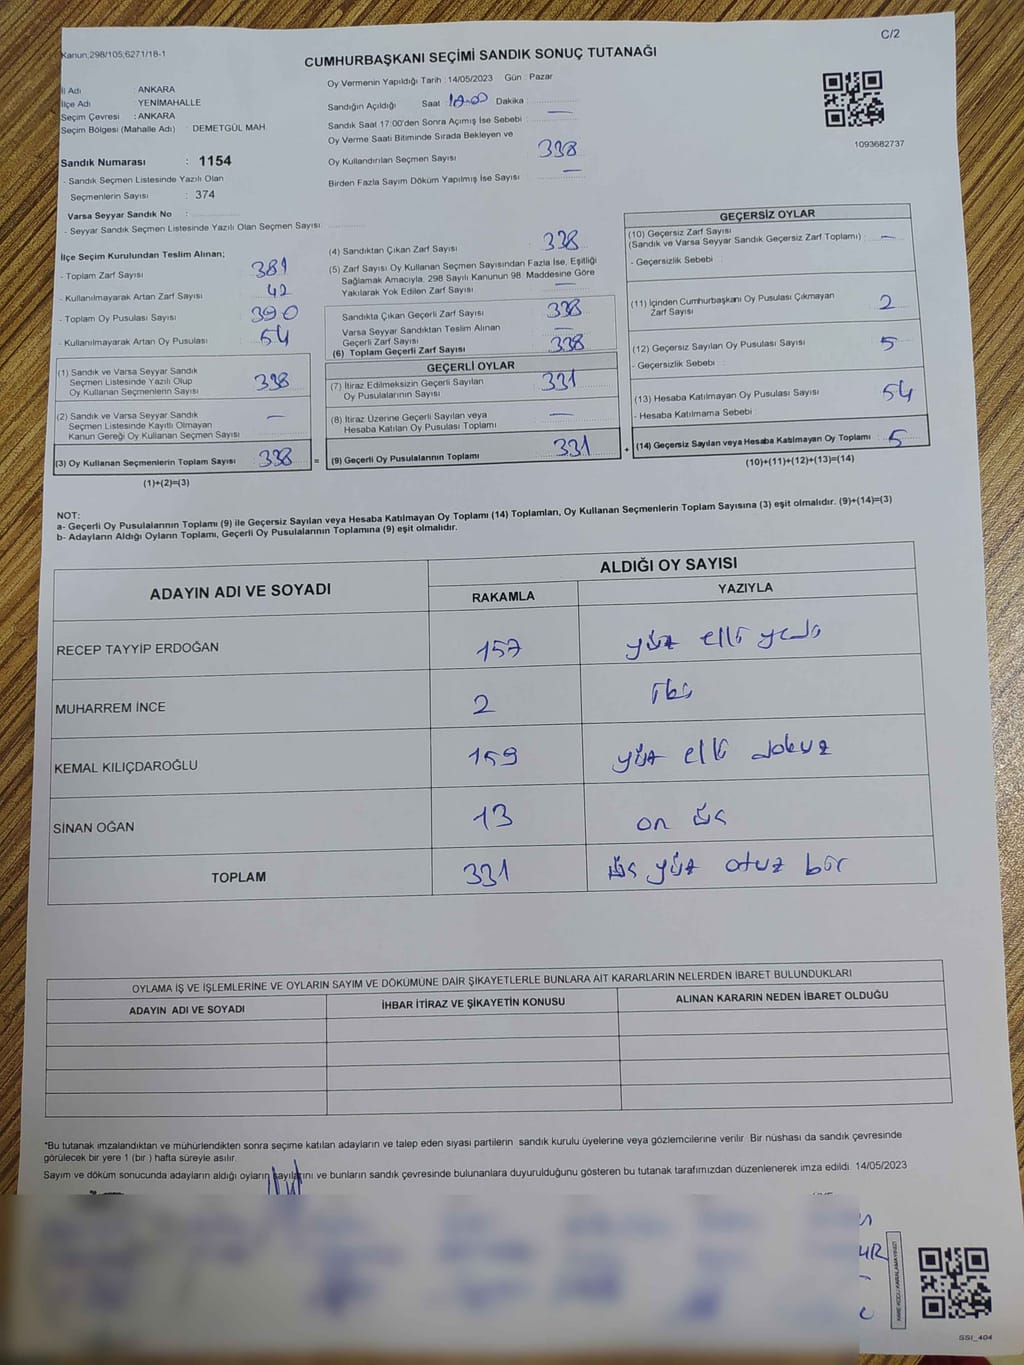 Kanun;298/105;6271/18-1
C/2
CUMHURBAŞKANI SEÇİMİ SANDIK SONUÇ TUTANAĞI
İl Adı : ANKARA
İlçe Adı : YENİMAHALLE
Seçim Çevresi : ANKARA
Seçim Bölgesi (Mahalle Adı) : DEMETGÜL MAH.
Sandık Numarası : 1154
- Sandık Seçmen Listesinde Yazılı Olan
Seçmenlerin Sayısı : 374
Varsa Seyyar Sandık No :
- Seyyar Sandık Seçmen Listesinde Yazılı Olan Seçmen Sayısı:
Oy Vermenin Yapıldığı Tarih : 14/05/2023 Gün : Pazar
Sandığın Açıldığı Saat : Dakika :
Sandık Saat 17:00'den Sonra Açımış İse Sebebi : —
Oy Verme Saati Bitiminde Sırada Bekleyen ve
Oy Kullandırılan Seçmen Sayısı 338
Birden Fazla Sayım Döküm Yapılmış İse Sayısı : —
1093682737
İlçe Seçim Kurulundan Teslim Alınan;
- Toplam Zarf Sayısı 381
- Kullanılmayarak Artan Zarf Sayısı 42
- Toplam Oy Pusulası Sayısı 390
- Kullanılmayarak Artan Oy Pusulası 54
(1) Sandık ve Varsa Seyyar Sandık
Seçmen Listesinde Yazılı Olup
Oy Kullanan Seçmenlerin Sayısı 338
(2) Sandık ve Varsa Seyyar Sandık
Seçmen Listesinde Kayıtlı Olmayan
Kanun Gereği Oy Kullanan Seçmen Sayısı —
(3) Oy Kullanan Seçmenlerin Toplam Sayısı 338 =
(1)+(2)=(3)
(4) Sandıktan Çıkan Zarf Sayısı 338
(5) Zarf Sayısı Oy Kullanan Seçmen Sayısından Fazla İse, Eşitliği
Sağlamak Amacıyla, 298 Sayılı Kanunun 98. Maddesine Göre
Yakılarak Yok Edilen Zarf Sayısı —
Sandıkta Çıkan Geçerli Zarf Sayısı 338
Varsa Seyyar Sandıktan Teslim Alınan
Geçerli Zarf Sayısı —
(6) Toplam Geçerli Zarf Sayısı 338
GEÇERLİ OYLAR
(7) İtiraz Edilmeksizin Geçerli Sayılan
Oy Pusulalarının Sayısı 331
(8) İtiraz Üzerine Geçerli Sayılan veya
Hesaba Katılan Oy Pusulası Toplamı —
(9) Geçerli Oy Pusulalarının Toplamı 331 +
GEÇERSİZ OYLAR
(10) Geçersiz Zarf Sayısı
(Sandık ve Varsa Seyyar Sandık Geçersiz Zarf Toplamı) : —
- Geçersizlik Sebebi :
(11) İçinden Cumhurbaşkanı Oy Pusulası Çıkmayan
Zarf Sayısı 2
(12) Geçersiz Sayılan Oy Pusulası Sayısı 5
- Geçersizlik Sebebi :
(13) Hesaba Katılmayan Oy Pusulası Sayısı 54
- Hesaba Katılmama Sebebi :
(14) Geçersiz Sayılan veya Hesaba Katılmayan Oy Toplamı : 5
(10)+(11)+(12)+(13)=(14)
NOT:
a- Geçerli Oy Pusulalarının Toplamı (9) ile Geçersiz Sayılan veya Hesaba Katılmayan Oy Toplamı (14) Toplamları, Oy Kullanan Seçmenlerin Toplam Sayısına (3) eşit olmalıdır. (9)+(14)=(3)
b- Adayların Aldığı Oyların Toplamı, Geçerli Oy Pusulalarının Toplamına (9) eşit olmalıdır.
ADAYIN ADI VE SOYADI ALDIĞI OY SAYISI
RAKAMLA YAZIYLA
RECEP TAYYİP ERDOĞAN 157 yüz elli yedi
MUHARREM İNCE 2 iki
KEMAL KILIÇDAROĞLU 159 yüz elli dokuz
SİNAN OĞAN 13 on üç
TOPLAM 331 üç yüz otuz bir
OYLAMA İŞ VE İŞLEMLERİNE VE OYLARIN SAYIM VE DÖKÜMÜNE DAİR ŞİKAYETLERLE BUNLARA AİT KARARLARIN NELERDEN İBARET BULUNDUKLARI
ADAYIN ADI VE SOYADI İHBAR İTİRAZ VE ŞİKAYETİN KONUSU ALINAN KARARIN NEDEN İBARET OLDUĞU
*Bu tutanak imzalandıktan ve mühürlendikten sonra seçime katılan adayların ve talep eden siyasi partilerin sandık kurulu üyelerine veya gözlemcilerine verilir. Bir nüshası da sandık çevresinde
görülecek bir yere 1 (bir ) hafta süreyle asılır.
Sayım ve döküm sonucunda adayların aldığı oyların sayılarını ve bunların sandık çevresinde bulunanlara duyurulduğunu gösteren bu tutanak tarafımızdan düzenlenerek imza edildi. 14/05/2023
KARE KODU KARALAMAYINIZ!
SSI_404